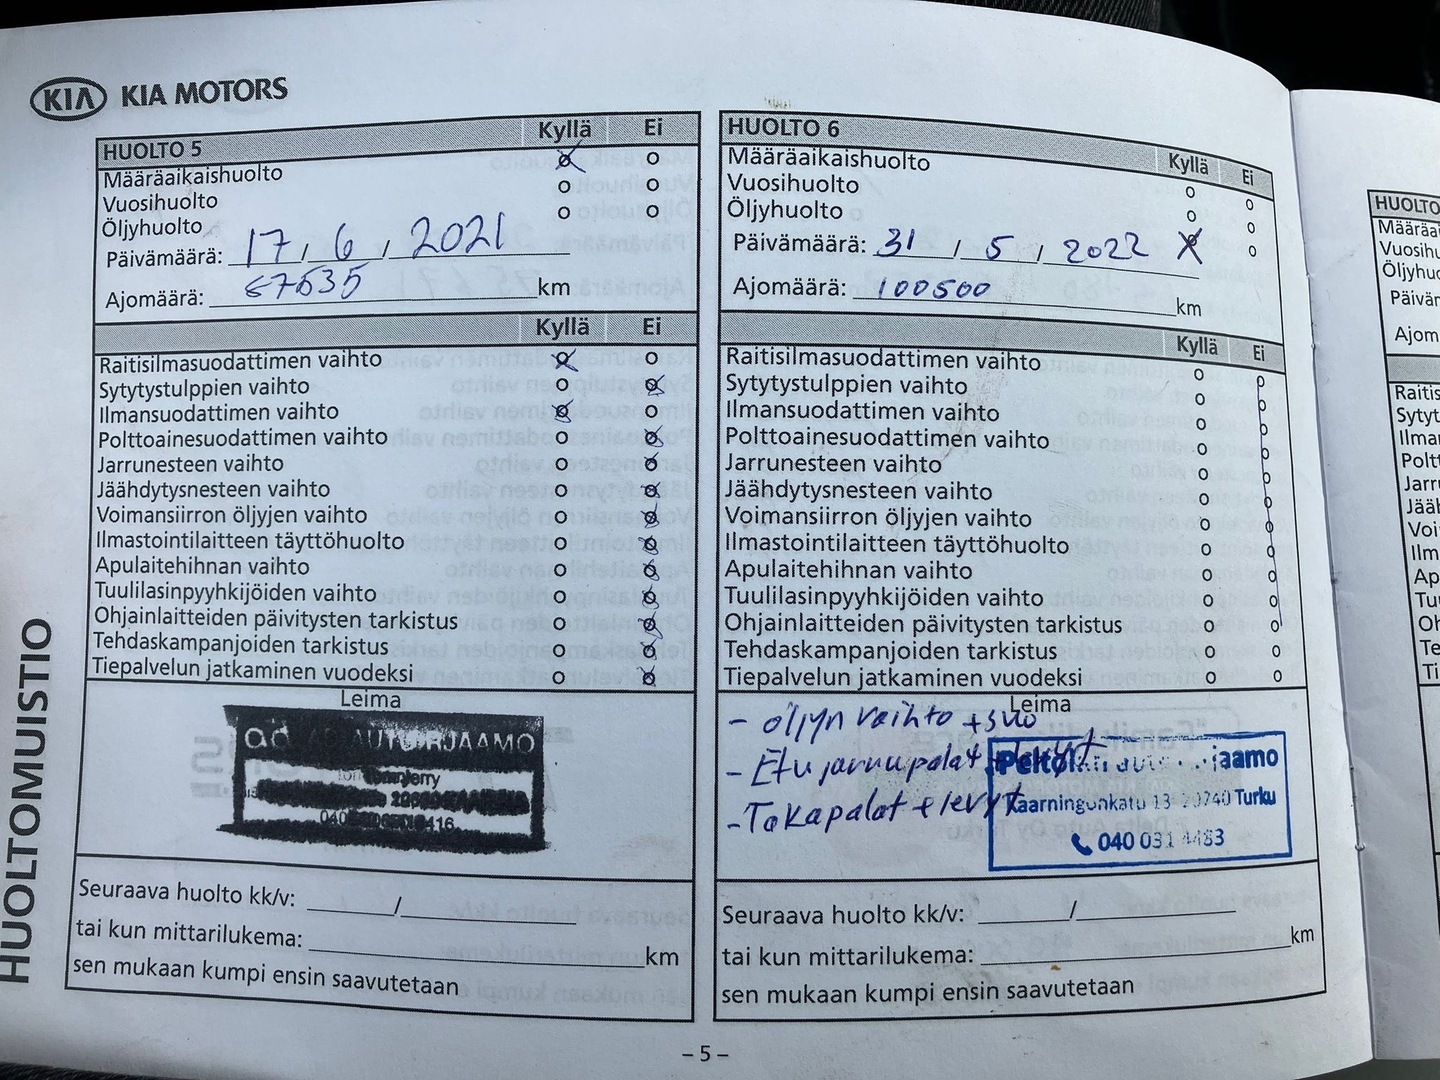 KIA KIA MOTORS
HUOLTO 5 Kyllä Ei
Määräaikaishuolto
Vuosihuolto
Öljyhuolto
Päivämäärä: 17 / 6 / 2021
Ajomäärä: 67535 km
Kyllä Ei
Raitisilmasuodattimen vaihto
Sytytystulppien vaihto
Ilmansuodattimen vaihto
Polttoainesuodattimen vaihto
Jarrunesteen vaihto
Jäähdytysnesteen vaihto
Voimansiirron öljyjen vaihto
Ilmastointilaitteen täyttöhuolto
Apulaitehihnan vaihto
Tuulilasinpyyhkijöiden vaihto
Ohjainlaitteiden päivitysten tarkistus
Tehdaskampanjoiden tarkistus
Tiepalvelun jatkaminen vuodeksi
Leima
ad AUTO
Seuraava huolto kk/v: /
tai kun mittarilukema: km
sen mukaan kumpi ensin saavutetaan
HUOLTO 6 Kyllä Ei
Määräaikaishuolto
Vuosihuolto
Öljyhuolto
Päivämäärä: 31 / 5 / 2022
Ajomäärä: 100500 km
Kyllä Ei
Raitisilmasuodattimen vaihto
Sytytystulppien vaihto
Ilmansuodattimen vaihto
Polttoainesuodattimen vaihto
Jarrunesteen vaihto
Jäähdytysnesteen vaihto
Voimansiirron öljyjen vaihto
Ilmastointilaitteen täyttöhuolto
Apulaitehihnan vaihto
Tuulilasinpyyhkijöiden vaihto
Ohjainlaitteiden päivitysten tarkistus
Tehdaskampanjoiden tarkistus
Tiepalvelun jatkaminen vuodeksi
Leima
- öljyn vaihto + suo
- Etu jarrupalat + levyt
- Takapalat + levyt
Kaarningonkatu 13 20740 Turku
040 031 4483
Seuraava huolto kk/v: /
tai kun mittarilukema: km
sen mukaan kumpi ensin saavutetaan
HUOLTOMUISTIO
– 5 –
HUOLTO